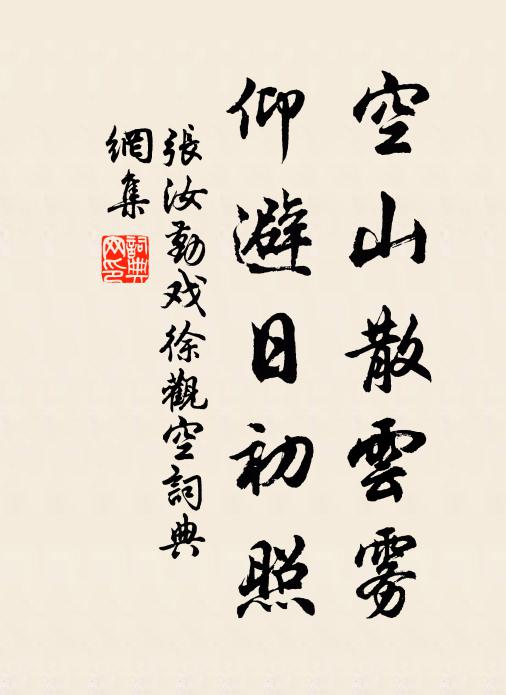 空山散雲雾
仰避日初照
張汝勤戏徐觀空詞典
網集
詞典
网印